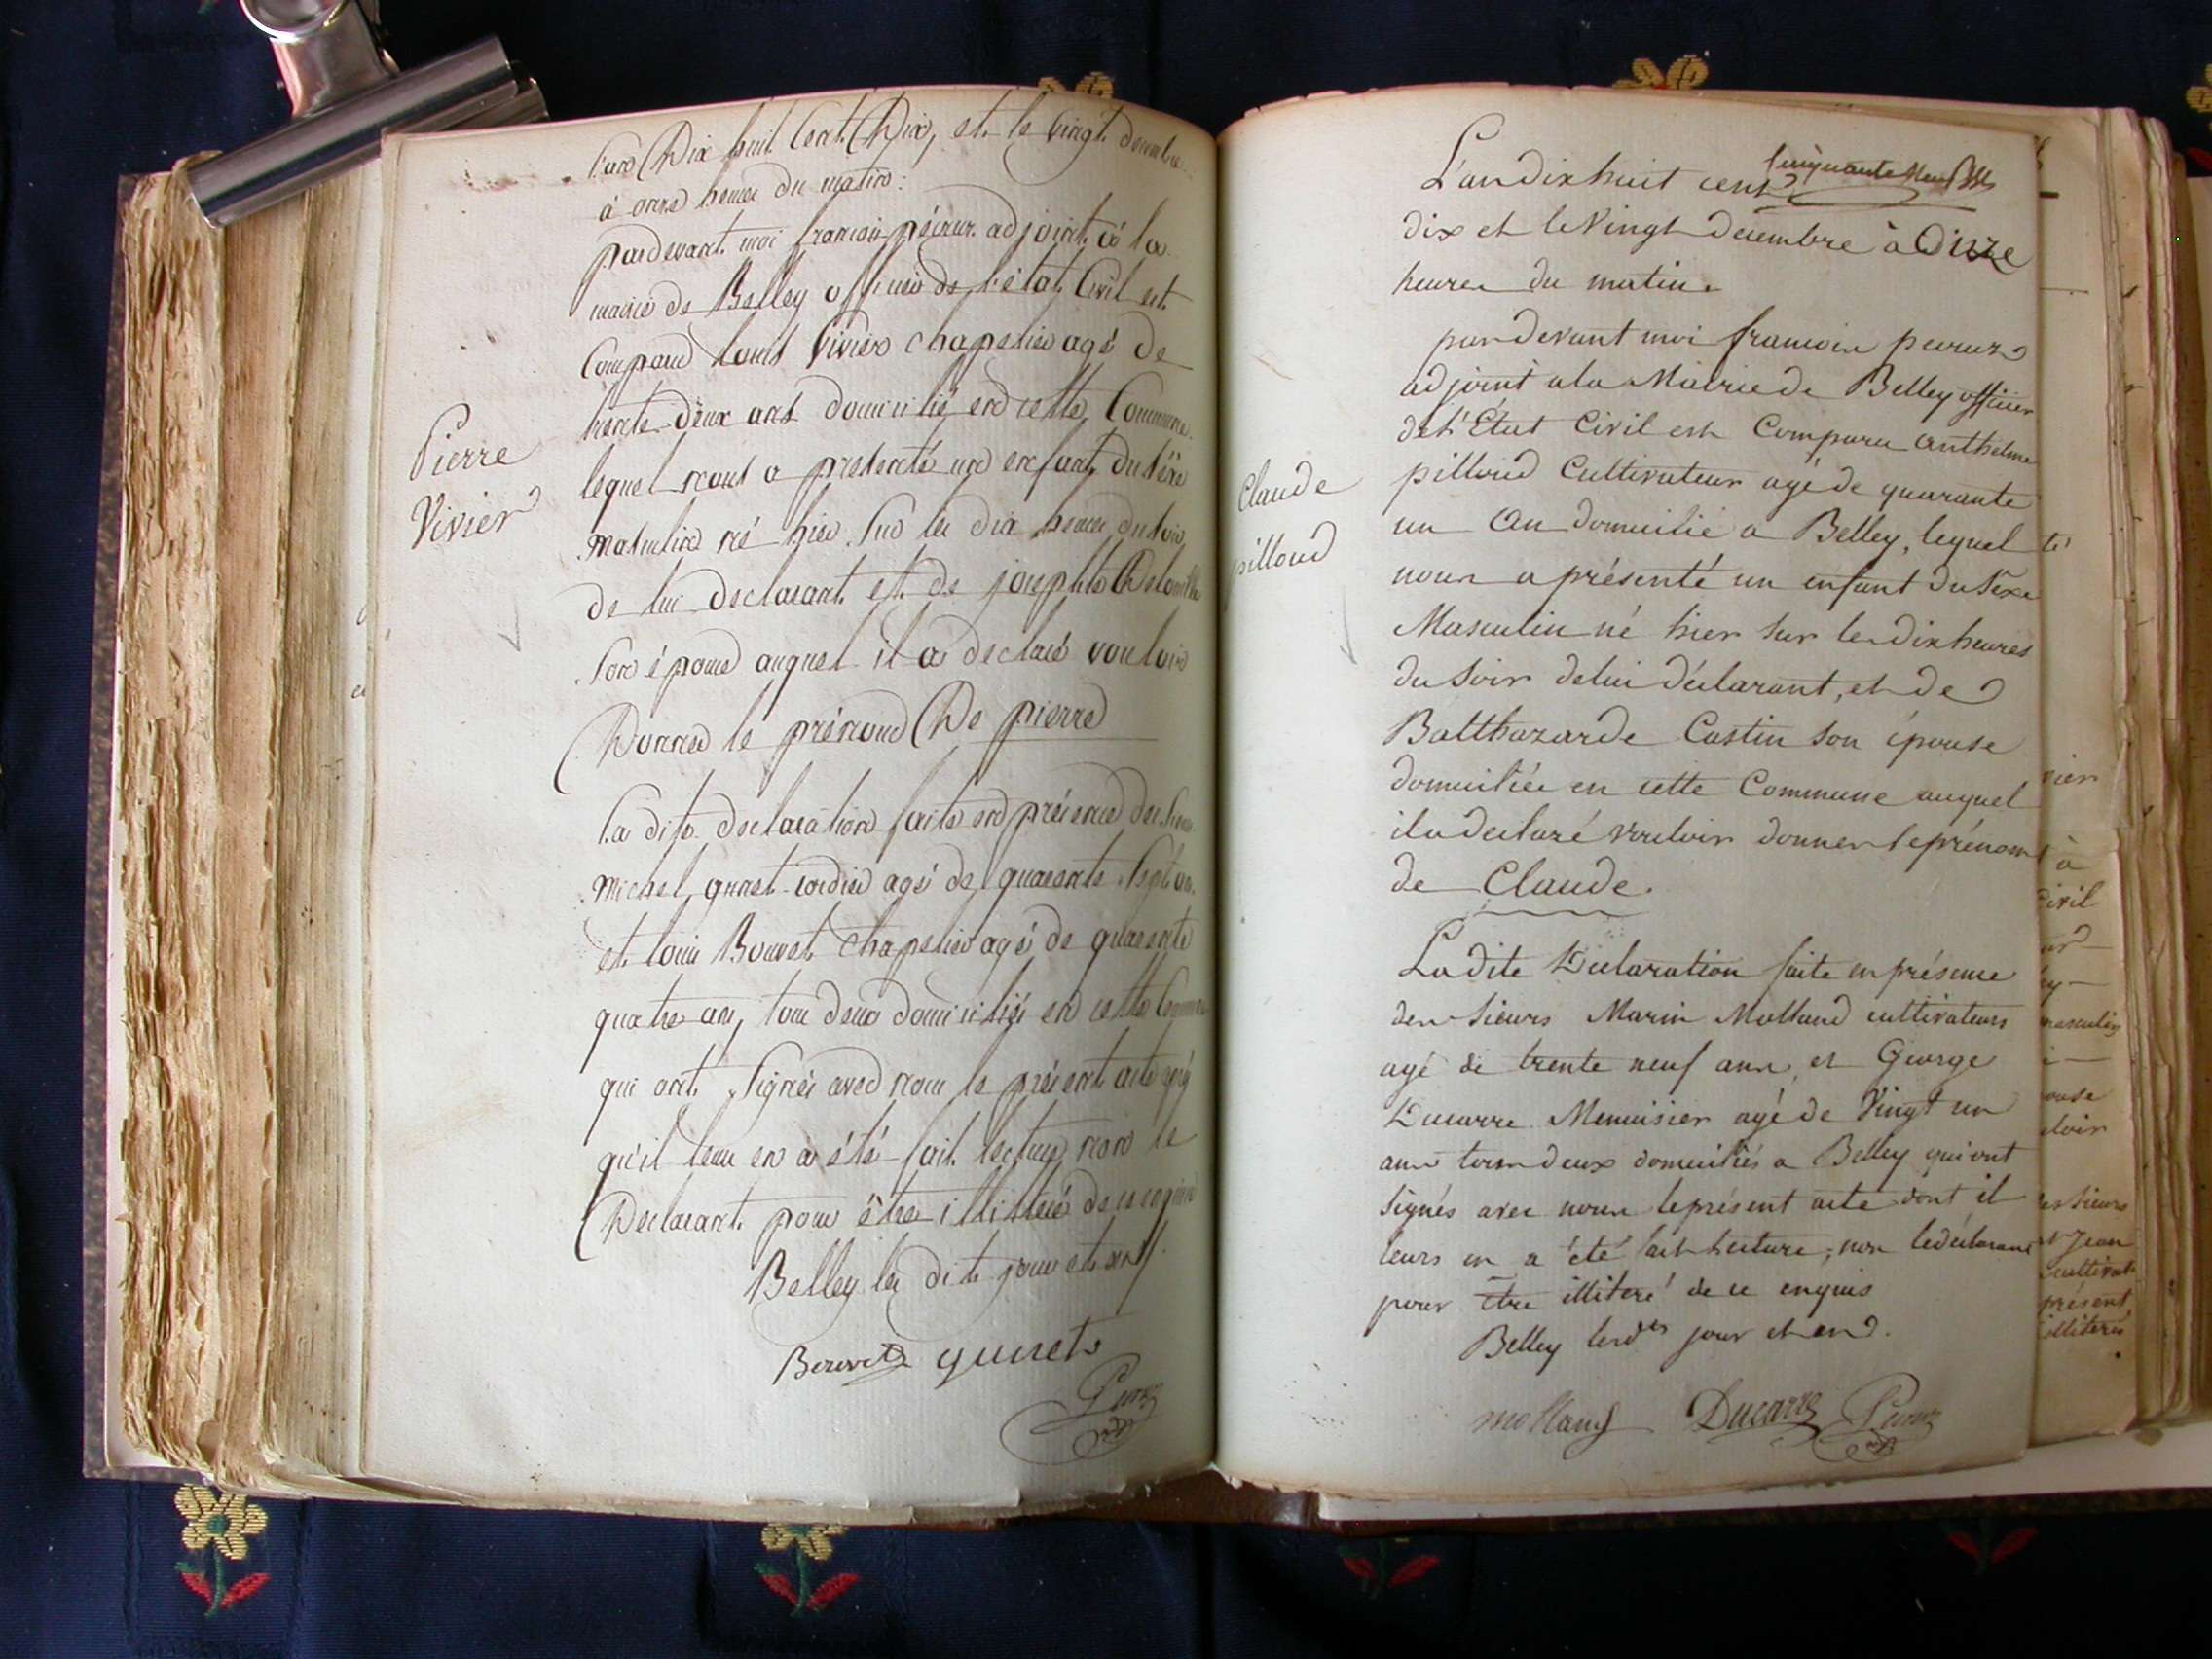 L'an Dix huit Cent Dix, et le vingt decembre
à onze heures du matin:
pardevant moi francois péeruz adjoint à la
mairie de Belley officier de l'état Civil est
Comparu Louis Vivier chapelier agé de
trente deux ans domicilié en cette Commune
lequel nous a presenté un enfant du sèxe
masculin né hier sur les dix heures du soir
de lui declarant et de josephte
son épouse auquel il a declaré vouloir
Donner le prénom De pierre
La dite declaration faite en présence des sieurs
michel gunet cordier agé de quarente sept ans
et louis Bouvet chapelier agé de quarente
quatre ans, tous deux domiciliés en cette Commune
qui ont signés avec nous le présent acte après
qu'il leur en a été fait lecture non le
Declarant pour être illitteré de ce enquis
Belley les dits jour et an
Bouvet gunet
Peeruz
adjt
Pierre
Vivier
L'an dix huit cent
Cinquante Neuf
dix et le Vingt decembre à Onze
heures du matin.
pardevant moi francois peeruz
adjoint a la Mairie de Belley officier
de l'État Civil est Comparu anthelme
pilloud Cultivateur agé de quarante
un an domicilié a Belley, lequel
nous a présenté un enfant du sexe
Masculin né hier sur les dix heures
du soir de lui déclarant, et de
Baltthazarde Castin son épouse
domiciliée en cette Commune auquel
il a declaré vouloir donner le prénom
de Claude.
La dite Déclaration faite en présence
des sieurs Marin Molland cultivateurs
agé de trente neuf ans, et George
Ducarre Menuisier agé de Vingt un
ans tous deux domiciliés a Belley qui ont
signés avec nous le présent acte dont il
leurs en a été fait lecture, non le déclarant
pour être illiteré de ce enquis
Belley les d.es jour et an.
molland Ducarre Peeruz
adjt
Claude
pilloud
té
vier
à
Civil
masculin
ouse
loir
les sieurs
et Jean
cultivat
présent
illiterés